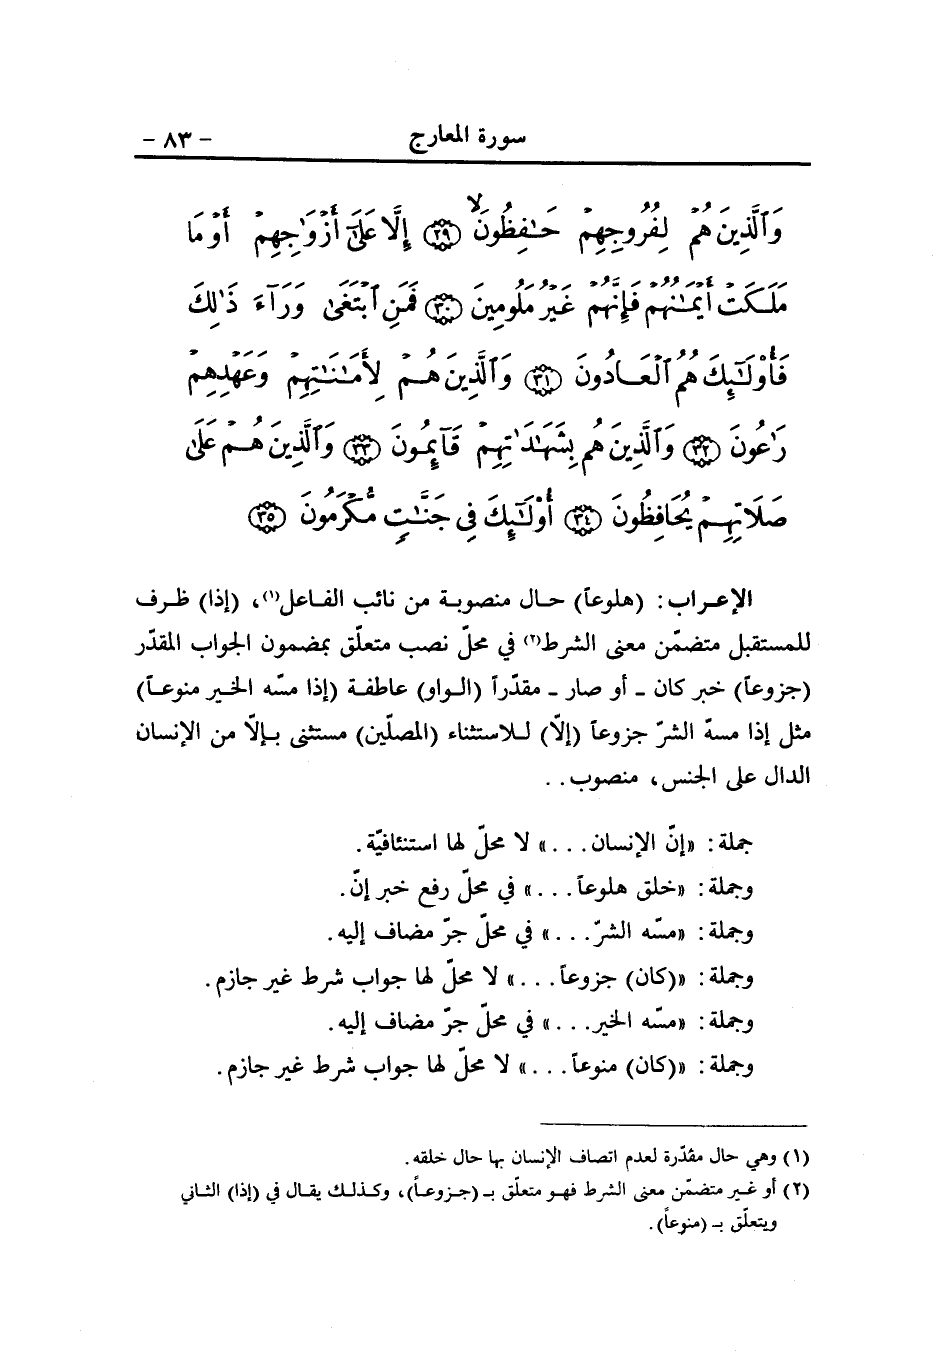 سورة المعارج - ٨٣ -
وَٱلَّذِينَ هُمْ لِفُرُوجِهِمْ حَٰفِظُونَ ۙ ﴿٢٩﴾ إِلَّا عَلَىٰٓ أَزْوَٰجِهِمْ أَوْ مَا
مَلَكَتْ أَيْمَٰنُهُمْ فَإِنَّهُمْ غَيْرُ مَلُومِينَ ﴿٣٠﴾ فَمَنِ ٱبْتَغَىٰ وَرَآءَ ذَٰلِكَ
فَأُوْلَٰٓئِكَ هُمُ ٱلْعَادُونَ ﴿٣١﴾ وَٱلَّذِينَ هُمْ لِأَمَٰنَٰتِهِمْ وَعَهْدِهِمْ
رَٰعُونَ ﴿٣٢﴾ وَٱلَّذِينَ هُم بِشَهَٰدَٰتِهِمْ قَآئِمُونَ ﴿٣٣﴾ وَٱلَّذِينَ هُمْ عَلَىٰ
صَلَاتِهِمْ يُحَافِظُونَ ﴿٣٤﴾ أُوْلَٰٓئِكَ فِى جَنَّٰتٍ مُّكْرَمُونَ ﴿٣٥﴾
الإعراب: (هلوعاً) حال منصوبة من نائب الفاعل(١)، (إذا) ظرف
للمستقبل متضمّن معنى الشرط(٢) في محلّ نصب متعلّق بمضمون الجواب المقدّر
(جزوعاً) خبر كان - أو صار - مقدّراً (الواو) عاطفة (إذا مسّه الخير منوعاً)
مثل إذا مسهّ الشرّ جزوعاً (إلّا) للاستثناء (المصلّين) مستثنى بإلّا من الإنسان
الدال على الجنس، منصوب..
جملة: «إنّ الإنسان...» لا محلّ لها استئنافيّة.
وجملة: «خلق هلوعاً...» في محلّ رفع خبر إنّ.
وجملة: «مسّه الشرّ...» في محلّ جرّ مضاف إليه.
وجملة: «(كان) جزوعاً...» لا محلّ لها جواب شرط غير جازم.
وجملة: «مسّه الخير...» في محلّ جرّ مضاف إليه.
وجملة: «(كان) منوعاً...» لا محلّ لها جواب شرط غير جازم.
(١) وهي حال مقدّرة لعدم اتصاف الإنسان بها حال خلقه.
(٢) أو غير متضمّن معنى الشرط فهو متعلّق بـ (جزوعاً)، وكذلك يقال في (إذا) الثاني
ويتعلّق بـ (منوعاً).